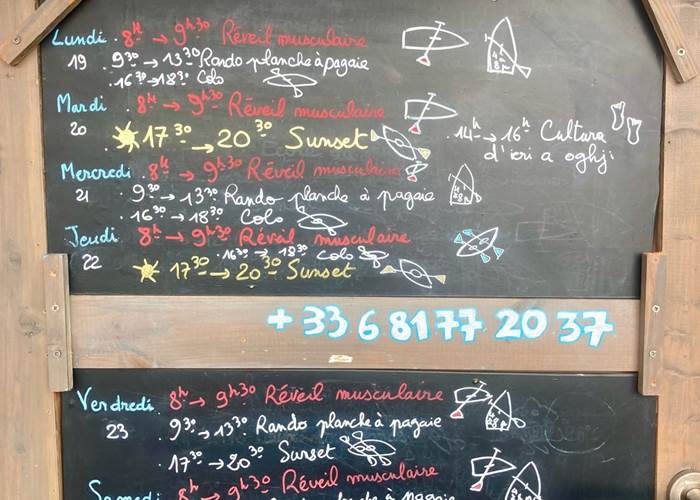 Lundi 8h → 9h30 Réveil musculaire
19 9 30 → 13 30 Rando planche à pagaie
. 16 30 → 18 30 Colo
Mardi . 8h → 9h30 Réveil musculaire
20 17 30 → 20 30 Sunset
. 14h → 16h Cultura
d'ieri a oghji
Mercredi . 8h → 9h30 Réveil musculaire
21 9 30 → 13 30 Rando planche à pagaie
. 16 30 → 18 30 Colo
Jeudi 8h → 9h30 Réveil musculaire
. 16 30 → 18 30 Colo
22 17 30 → 20 30 Sunset
+33 6 81 77 20 37
Vendredi . 8h → 9h30 Réveil musculaire
23 . 9 30 → 13 30 Rando planche à pagaie
. 17 30 → 20 30 Sunset
Samedi 8h → 9h30 Réveil musculaire
planche à pagaie